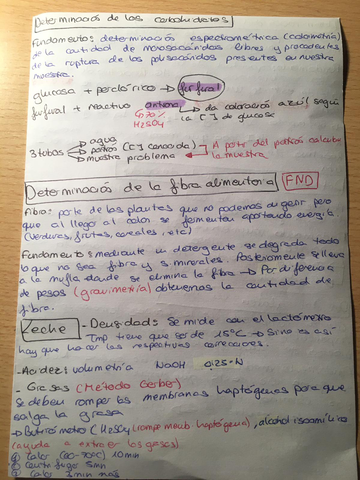 Determinación de los carbohidratos
Fundamento: determinación espectrométrica (colorimetría)
de la cantidad de monosacáridos libres y procedentes
de la ruptura de los polisacáridos presentes en nuestra
muestra.
glucosa + perclórico → furfural
furfural + reactivo antrona → da coloración azul según
la [ ] de glucosa
70%
H2SO4
3 tubos → agua
→ patrón ([ ] conocida)
→ muestra problema
A partir del patrón calcular
la muestra
Determinación de la fibra alimentaria FND
Fibra: parte de las plantas que no podemos digerir pero
que al llegar al colon se fermentan aportando energía
(Verduras, frutas, cereales, etc)
Fundamento: mediante un detergente se degrada todo
lo que no sea fibra y s. minerales. Posteriormente se lleva
a la mufla donde se elimina la fibra → Por diferencia
de pesos (gravimetría) obtenemos la cantidad de
fibra.
Leche - Densidad: Se mide con el lactómetro
Tmp tiene que ser de 15ºC → Si no es así
hay que hacer las respectivas correcciones.
- Acidez: volumetría NaOH 0,25 N
- Grasas (Método Gerber)
se deben romper las membranas haptógenas para que
salga la grasa
→ Butirómetro (H2SO4 (rompe memb haptógena), alcohol isoamílico
(ayuda a extraer las grasas).
① Calor (60-70ºC) 10min
② Centrífugo 5min
③ Calor 1 min más